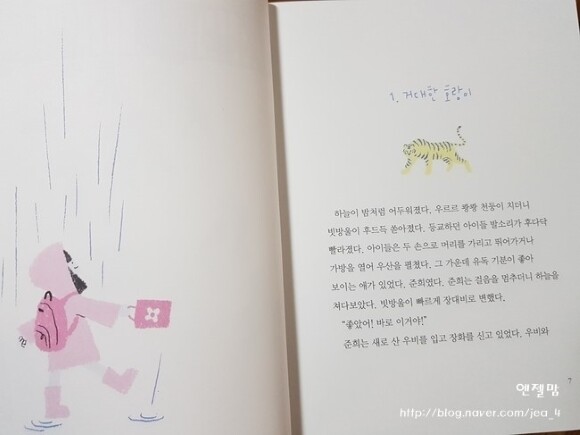 1. 거대한 호랑이
하늘이 밤처럼 어두워졌다. 우르르 쾅쾅 천둥이 치더니
빗방울이 후드득 쏟아졌다. 등교하던 아이들 발소리가 후다닥
빨라졌다. 아이들은 두 손으로 머리를 가리고 뛰어가거나
가방을 열어 우산을 펼쳤다. 그 가운데 유독 기분이 좋아
보이는 애가 있었다. 준희였다. 준희는 걸음을 멈추더니 하늘을
쳐다보았다. 빗방울이 빠르게 장대비로 변했다.
"좋았어! 바로 이거야!"
준희는 새로 산 우비를 입고 장화를 신고 있었다. 우비와
7
앤젤맘
http://blog.naver.com/jea_4